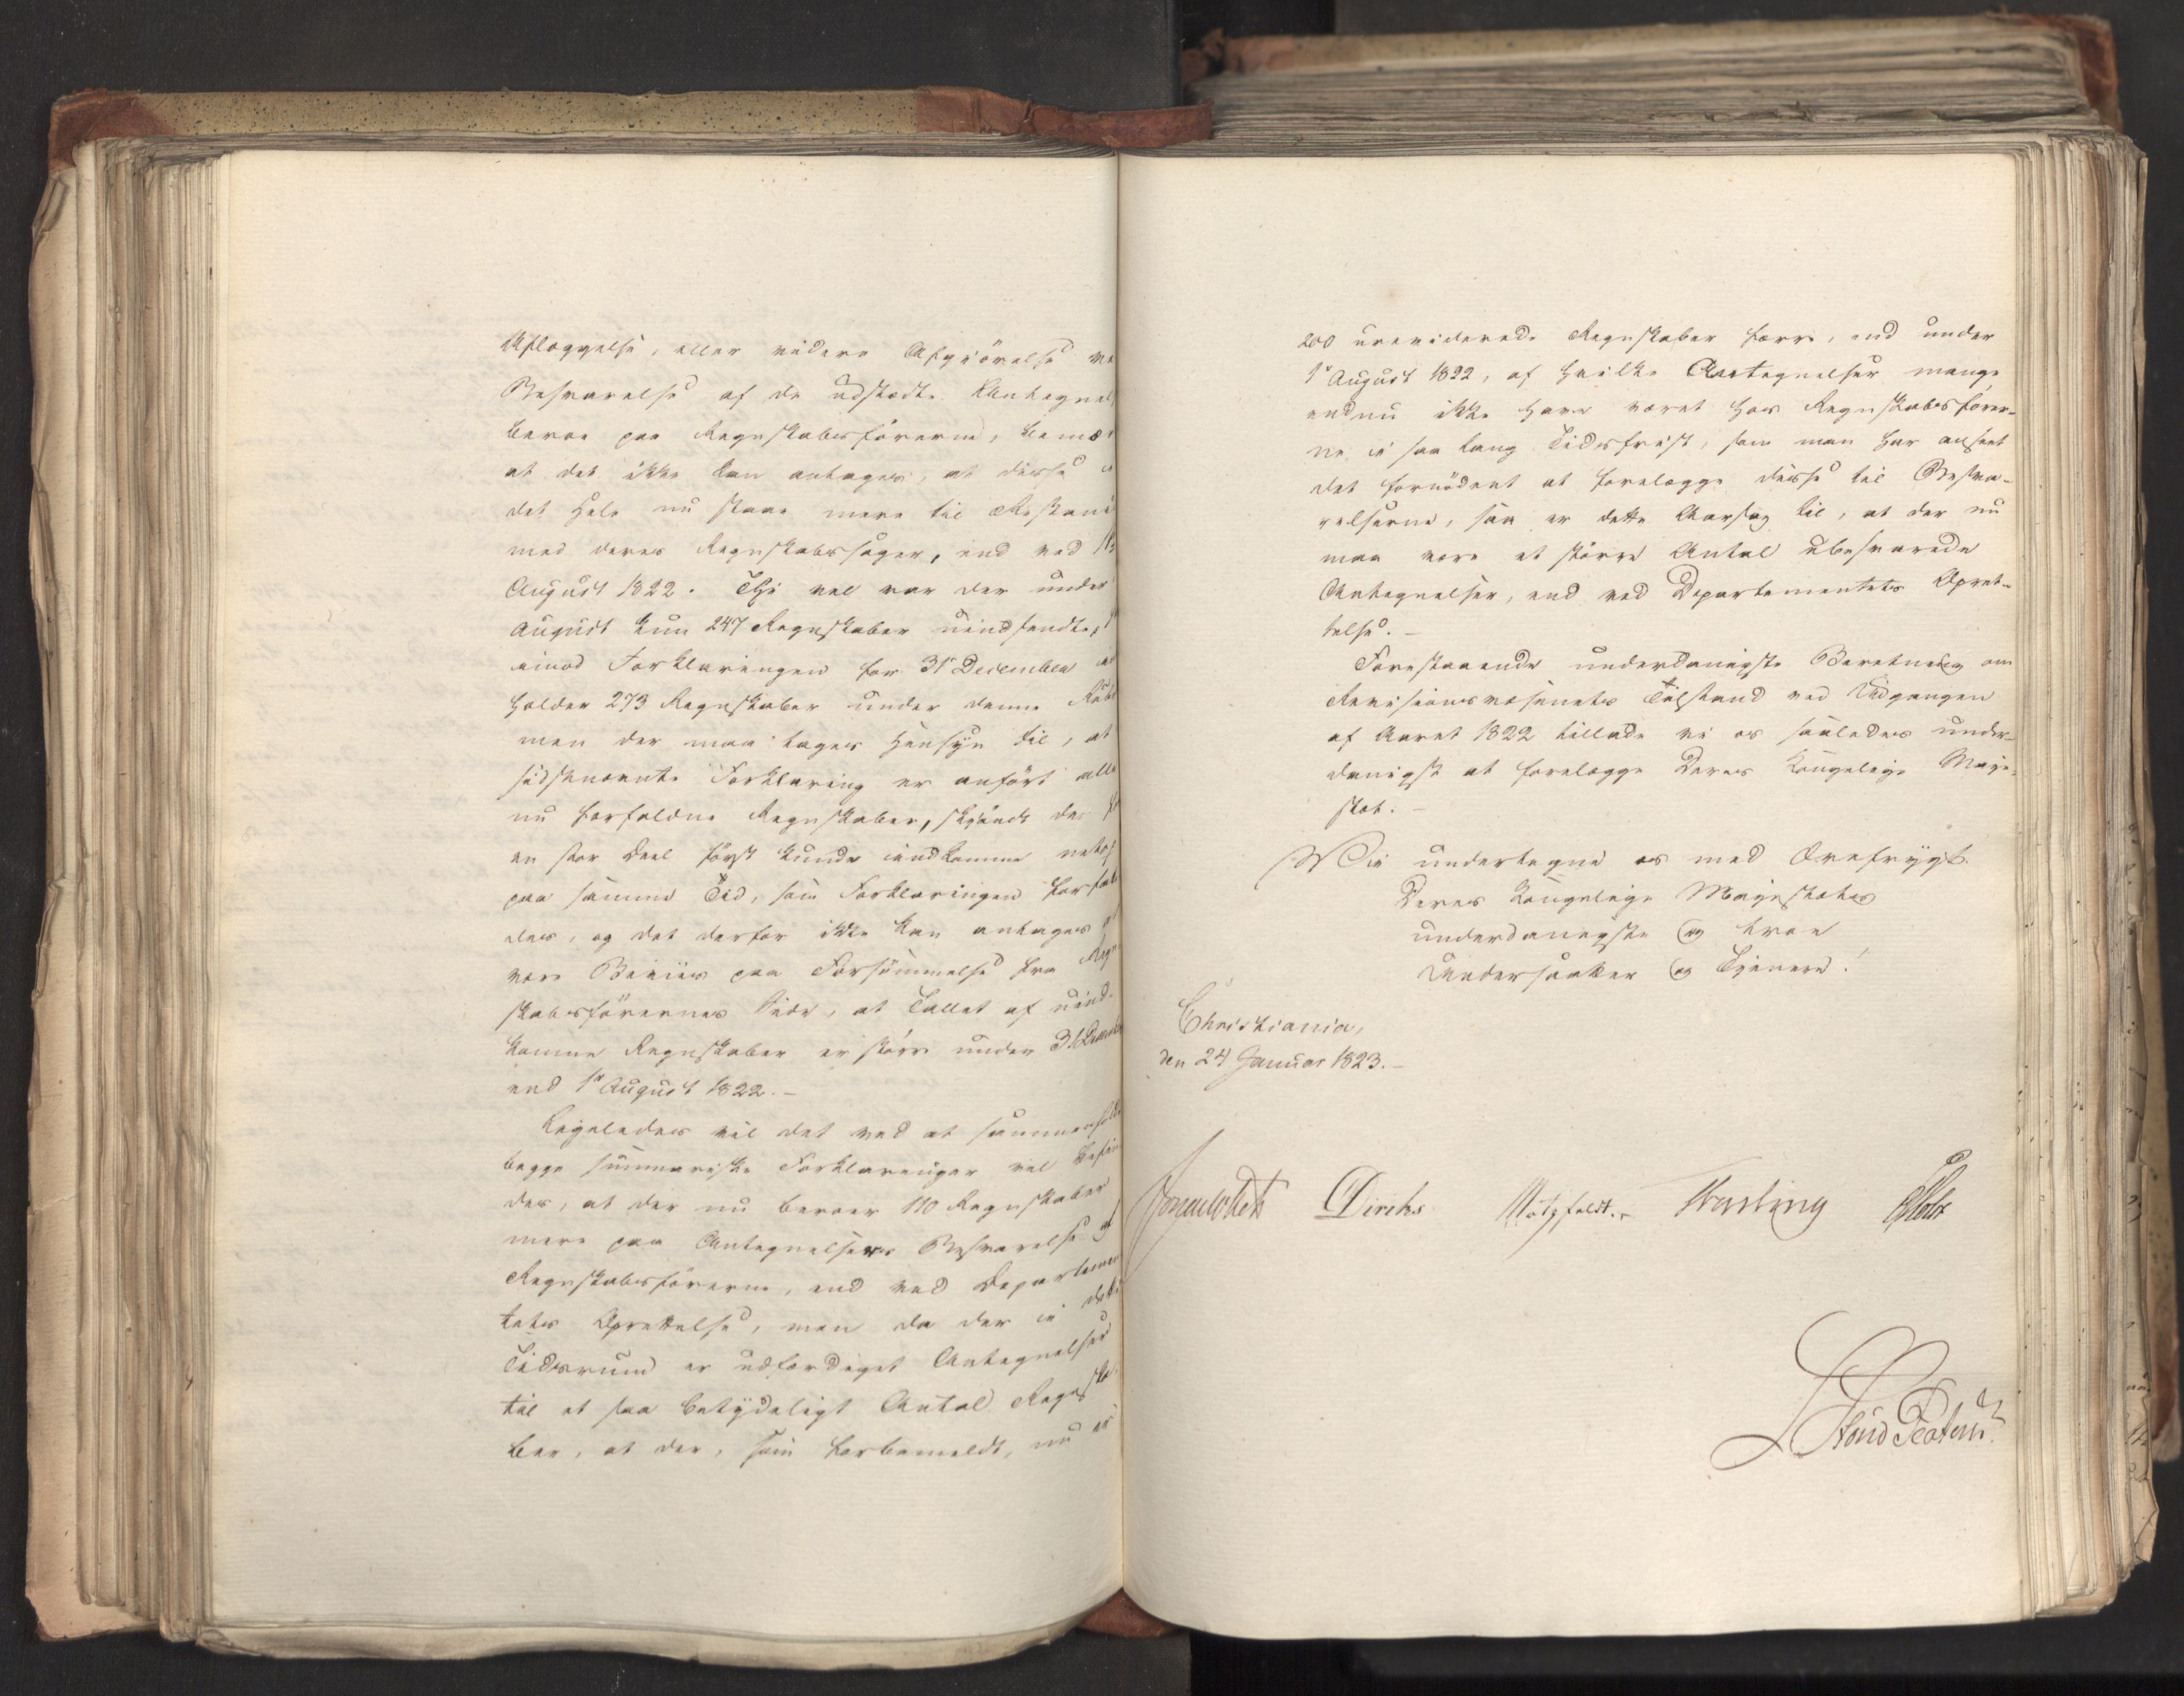 Aflæggelse, eller videre Afgiörelse ve
Besvarelse af de udstædte Antegnel
beroe paa Regnskabsförerne, bemær
at det ikke kan antages, at disse i
det Hele nu staae mere til Restance
med deres Regnskabssager, end ved 1ste
August 1822. Thi vel var der under
August kun 247 Regnskaber uindsendte,
imod Forklaringen for 31 December in
holder 273 Regnskaber under denne Rubr
men der maa tages Hensyn til, at
sidstnævnte Forklaring er anført alle
nu forfaldne Regnskaber, skjöndt de
en stor Deel först kunde indkomme netop
paa samme Tid, som Forklaringen forfat
des, og det derfor ikke kan antages at
være Beviis paa Forsömmelse fra Regn
skabsförernes Side, at Tallet af uind-
komne Regnskaber er större under 31 December
end 1ste August 1822. –
Ligeledes vil det ved at sammenholde
begge summariske Forklaringer vel befin
des, at der nu beroer 110 Regnskaber
mere paa Antegnelsers Besvarelse af
Regnskabsförerne, end ved Departemen
tets Oprettelse, men da der i dette
Tidsrum er udfærdiget Antegnelser
til et saa betydeligt Antal Regnska
ber, at der, som forbemeldt, nu er
200 ureviderede Regnskaber færre, end under
1ste August 1822, af hvilke Antegnelser mange
endnu ikke have været hos Regnskabsförer-
ne i saa lang Tidsfrist, som man har anseet
det fornödent at forelægge disse til Besva-
relserne, saa er dette Aarsag til, at der nu
maa være et större Antal ubesvarede
Antegnelser, end ved Departementets Opret-
telse. –
Forestaaende underdanigste Beretning om
Revisionsvæsenets Tilstand ved Udgangen
af Aaret 1822 tillade vi os saaledes under-
danigst at forelægge Deres Kongelige Maje-
stæt. –
Vi undertegne os med Ærefrygt.
Deres Kongelige Majestæts
underdanigste og troe
Undersaatter og Tjenere!
Christiania,
den 24 Januar 1823. –
Diriks Motzfeldt. Fasting